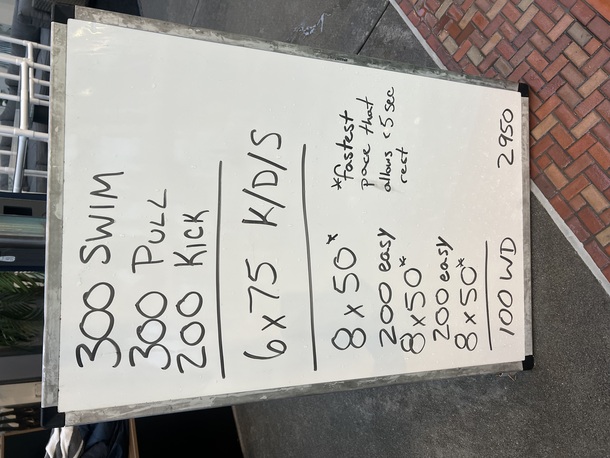 300 SWIM
300 PULL
200 KICK
6 x 75 K/D/S
8 x 50*
200 easy
8 x 50*
200 easy
8 x 50*
*fastest
pace that
allows < 5 sec
rest
100 WD
2950